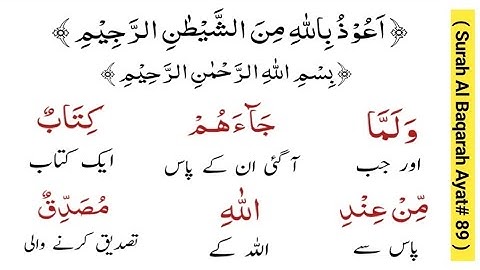 ﴿ اَعُوْذُ بِاللّٰهِ مِنَ الشَّيْطٰنِ الرَّجِيْمِ ﴾
﴿ بِسْمِ اللّٰهِ الرَّحْمٰنِ الرَّحِيْمِ ﴾
وَلَمَّا جَآءَهُمْ كِتَابٌ
اور جب آ گئی ان کے پاس ایک کتاب
مِّنْ عِنْدِ اللّٰهِ مُصَدِّقٌ
پاس سے اللہ کے تصدیق کرنے والی
( Surah Al Baqarah Ayat# 89 )